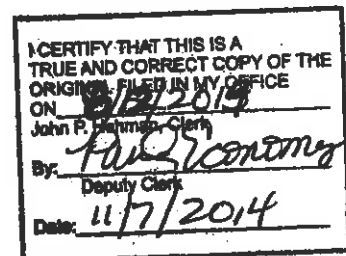 I CERTIFY THAT THIS IS A
TRUE AND CORRECT COPY OF THE
ORIGINAL FILED IN MY OFFICE
ON
John P. Hehman, Clerk
By:
Deputy Clerk
Date: 11/7/2014